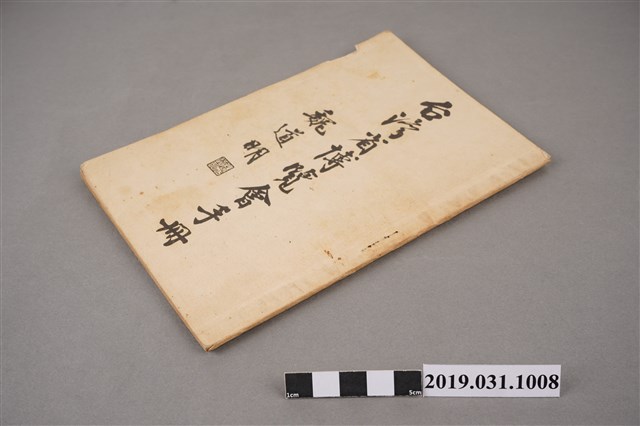 台灣省博覽會手冊
魏道明
1cm
5cm
2019.031.1008